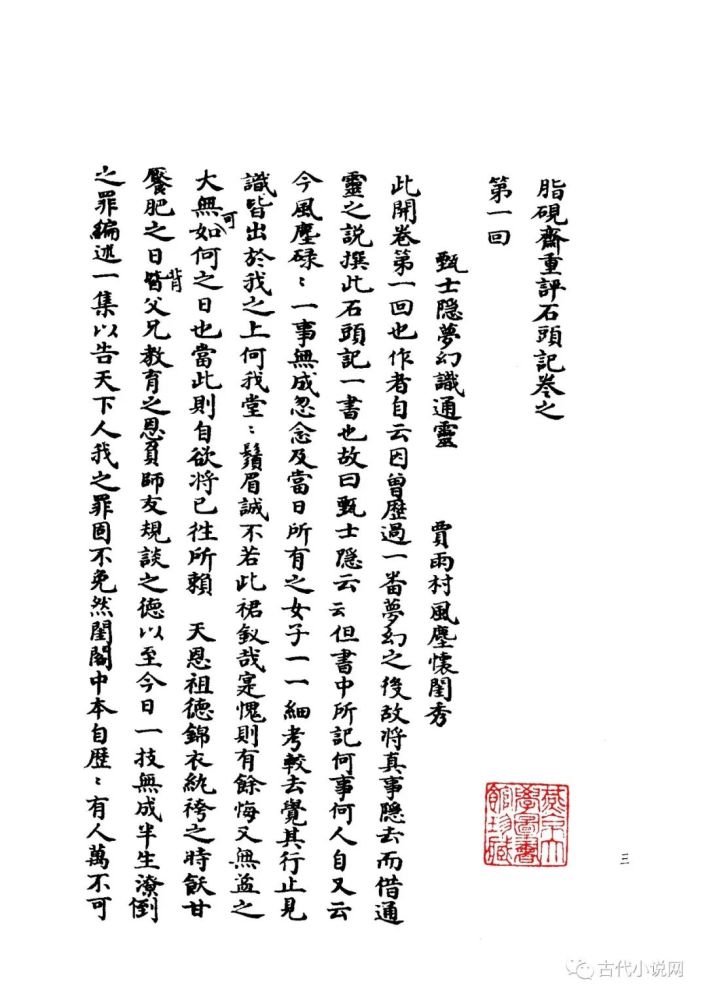 三
燕京大
學圖書
館珍藏
脂硯齋重評石頭記卷之
第一回
甄士隐夢幻識通靈　賈雨村風塵懷閨秀
此開卷第一回也作者自云因曾歷過一畨夢幻之後故將真事隐去而借通
靈之説撰此石頭記一書也故曰甄士隐云云但書中所記何事何人自又云
今風塵碌：一事無成忽念及當日所有之女子一一細考較去覺其行止見
識皆出於我之上何我堂：鬚眉誠不若此裙釵哉寔愧則有餘悔又無益之
大無可如何之日也當此則自欲将已徃所賴　天恩祖德錦衣紈袴之時飫甘
饜肥之日背父兄教育之恩負師友規談之德以至今日一技無成半生潦倒
之罪編述一集以告天下人我之罪固不免然閨閣中本自歷：有人萬不可
古代小说网